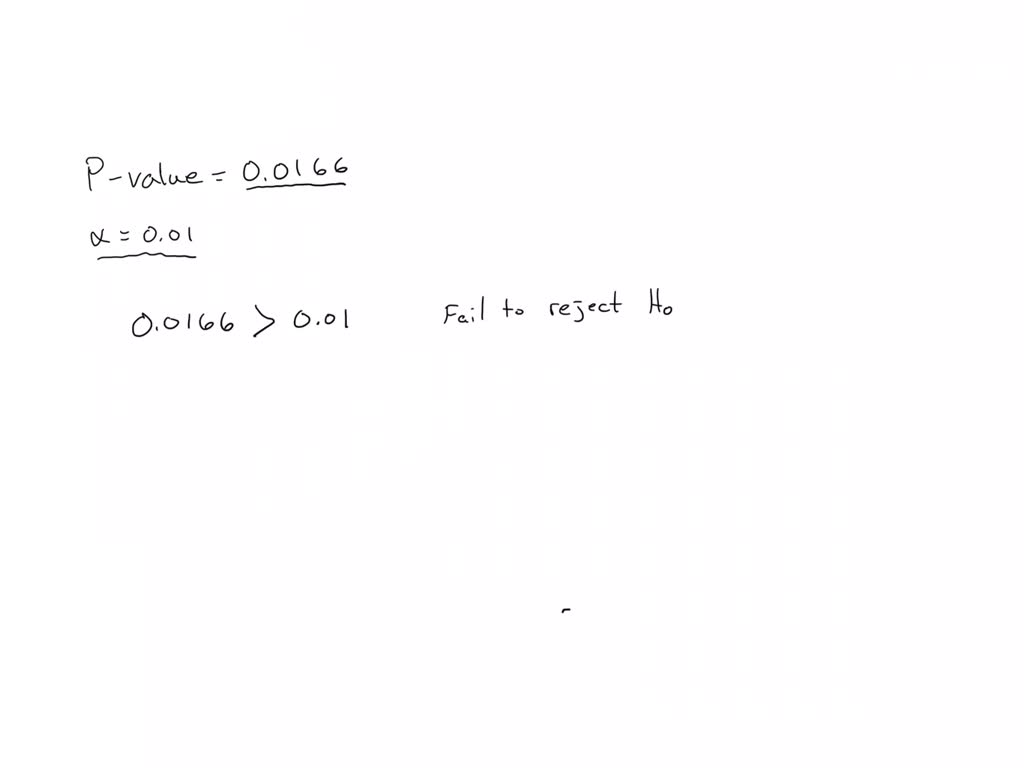 P-value = 0.0166
α = 0.01
0.0166 > 0.01 Fail to reject H₀